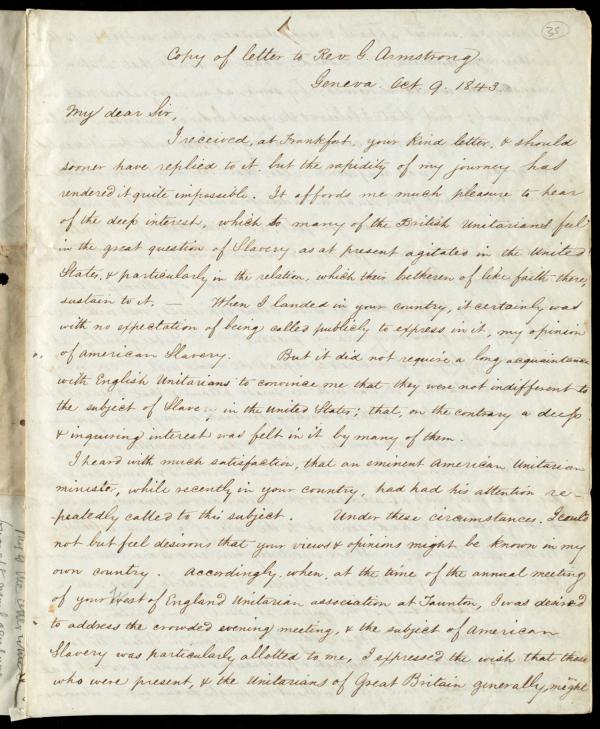 35
Copy of letter to Rev. G. Armstrong.
Geneva. Oct. 9. 1843.
My dear Sir,
I received, at Frankfort, your kind letter, & should
sooner have replied to it, but the rapidity of my journey has
rendered it quite impossible. It affords me much pleasure to hear
of the deep interest, which so many of the British Unitarians feel
in the great question of Slavery as at present agitated in the United
States, & particularly in the relation, which their bretheren of like faith there,
sustain to it. — When I landed in your country, it certainly was
with no expectation of being called publicly to express in it, my opinion
of American Slavery. But it did not require a long acquaintance
with English Unitarians to convince me that they were not indifferent to
the subject of Slavery in the United States; that, on the contrary a deep
& inquiring interest was felt in it by many of them.
I heard with much satisfaction, that an eminent American Unitarian
minister, while recently in your country, had had his attention re-
peatedly called to this subject. Under these circumstances, I could
not but feel desirous that your views & opinions might be known in my
own country. Accordingly, when, at the time of the annual meeting
of your West of England Unitarian association at Taunton, I was desired
to address the crowded evening meeting, & the subject of American
Slavery was particularly allotted to me, I expressed the wish that those
who were present, & the Unitarians of Great Britain generally, might